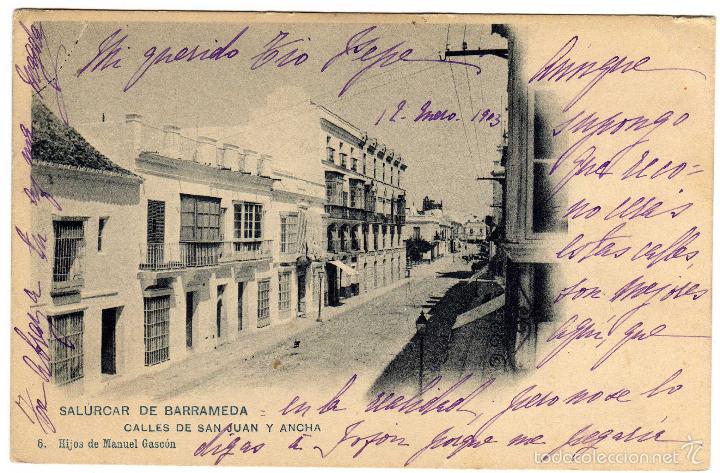 Mi querido Tio Pepe
12 Enero. 1903
Aunque
supongo
que reco=
noceras
estas calles,
son mejores
aquí que
en la realidad, pero no se lo
digas a porque me pegaría
Te abraza tu
SALÚRCAR DE BARRAMEDA
CALLES DE SAN JUAN Y ANCHA
6. Hijos de Manuel Gascón
todocoleccion.net